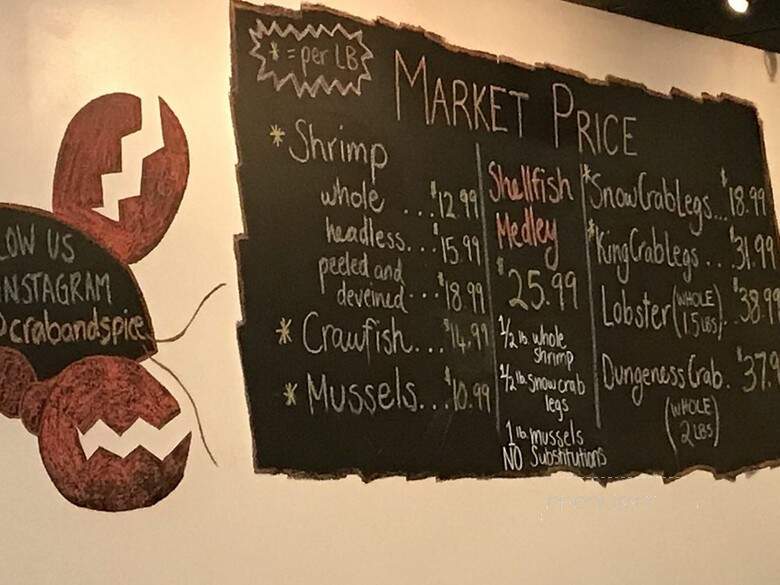 * = per LB
MARKET PRICE
* Shrimp
whole ... $12.99
headless... $15.99
peeled and
deveined... $18.99
* Crawfish... $14.99
* Mussels... $10.99
Shellfish
Medley
$25.99
1/2 lb whole
shrimp
1/2 lb snow crab
legs
1 lb mussels
NO Substitutions
*Snow Crab Legs... $18.99
*King Crab Legs... $31.99
Lobster (WHOLE 1.5 LBS). $38.99
Dungeness Crab. $37.9
(WHOLE
2 LBS)
LOW US
INSTAGRAM
@crabandspice